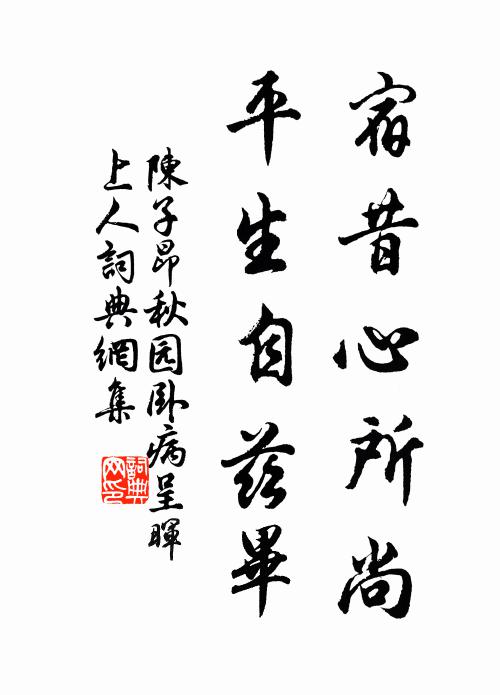 宿昔心所尚
平生自茲畢
陳子昂秋园卧病呈暉
上人詞典網集
詞典
网印